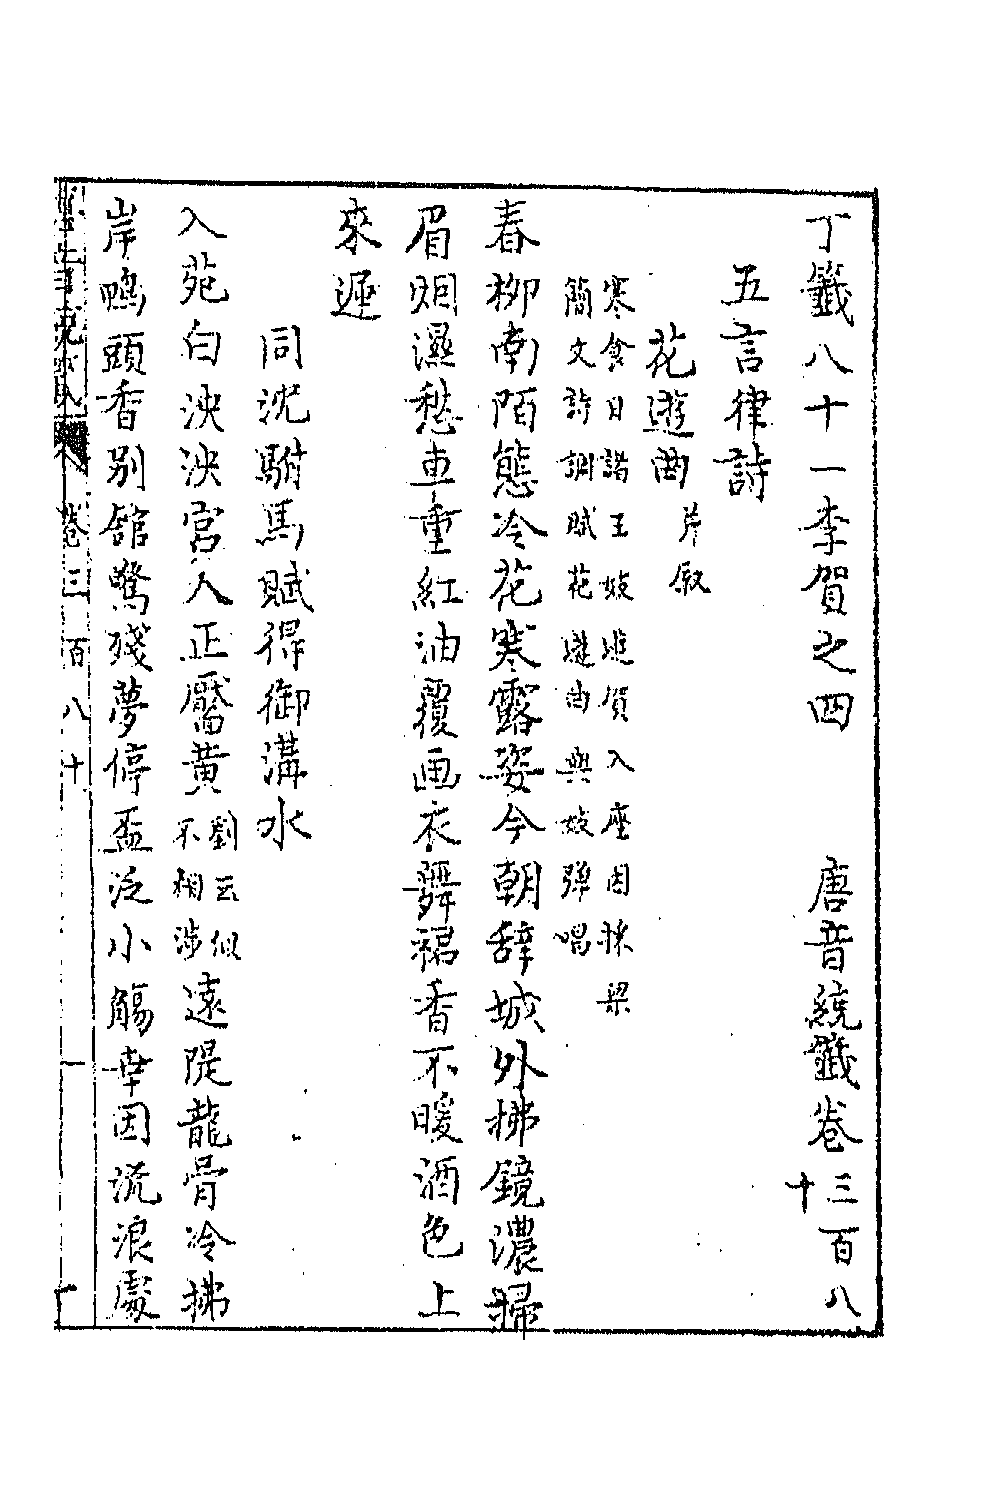 丁籤八十一李賀之四　唐音統籤卷三百八十
五言律詩
花遊曲并叙
寒食日諸王妓遊賀入座因採梁
簡文詩調賦花遊曲與妓彈唱
春柳南陌態冷花寒露姿今朝辭城外拂鏡濃掃
眉烟濕愁車重紅油覆画衣舞裙香不暖酒色上
來遲
同沈駙馬賦得御溝水
入苑白泱泱宮人正靨黃劉云似不相涉遠隄龍骨冷拂
岸鴨頭香別舘驚殘夢停盃泛小觴幸因流浪處
卷三百八十　一